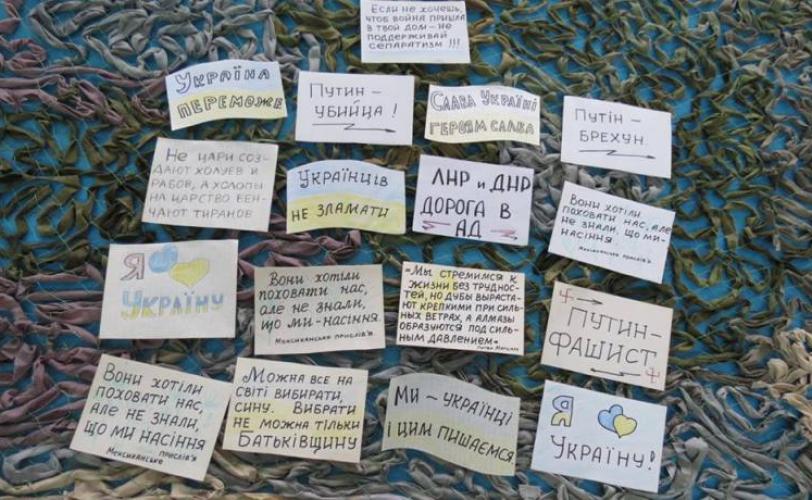 Если не хочешь,
чтоб война пришла
в твой дом - не
поддерживай
сепаратизм !!!
Україна
переможе
Путин -
убийца !
Слава Україні
Героям слава
Путін -
брехун.
Не цари соз-
дают холуев и
рабов, а холопы
на царство вен-
чают тиранов
Українців
не зламати
ЛНР и ДНР
дорога в
ад
Вони хотіли
поховати нас, але
не знали, що ми-
насіння.
Мексиканське прислів'я
Я
Україну
Вони хотіли
поховати нас,
але не знали,
що ми-насіння
Мексиканське прислів'я
«Мы стремимся к
жизни без труднос-
тей, но дубы выраста-
ют крепкими при силь-
ных ветрах, а алмазы
образуются под силь-
ным давлением»
Питер Маршалл
Путин-
фашист
Вони хотіли
поховати нас,
але не знали,
що ми насіння
Мексиканське прислів'я
Можна все на
світі вибирати,
сину. Вибрати
не можна тільки
Батьківщину
Ми - українці
і цим пишаємся
Я
Україну!